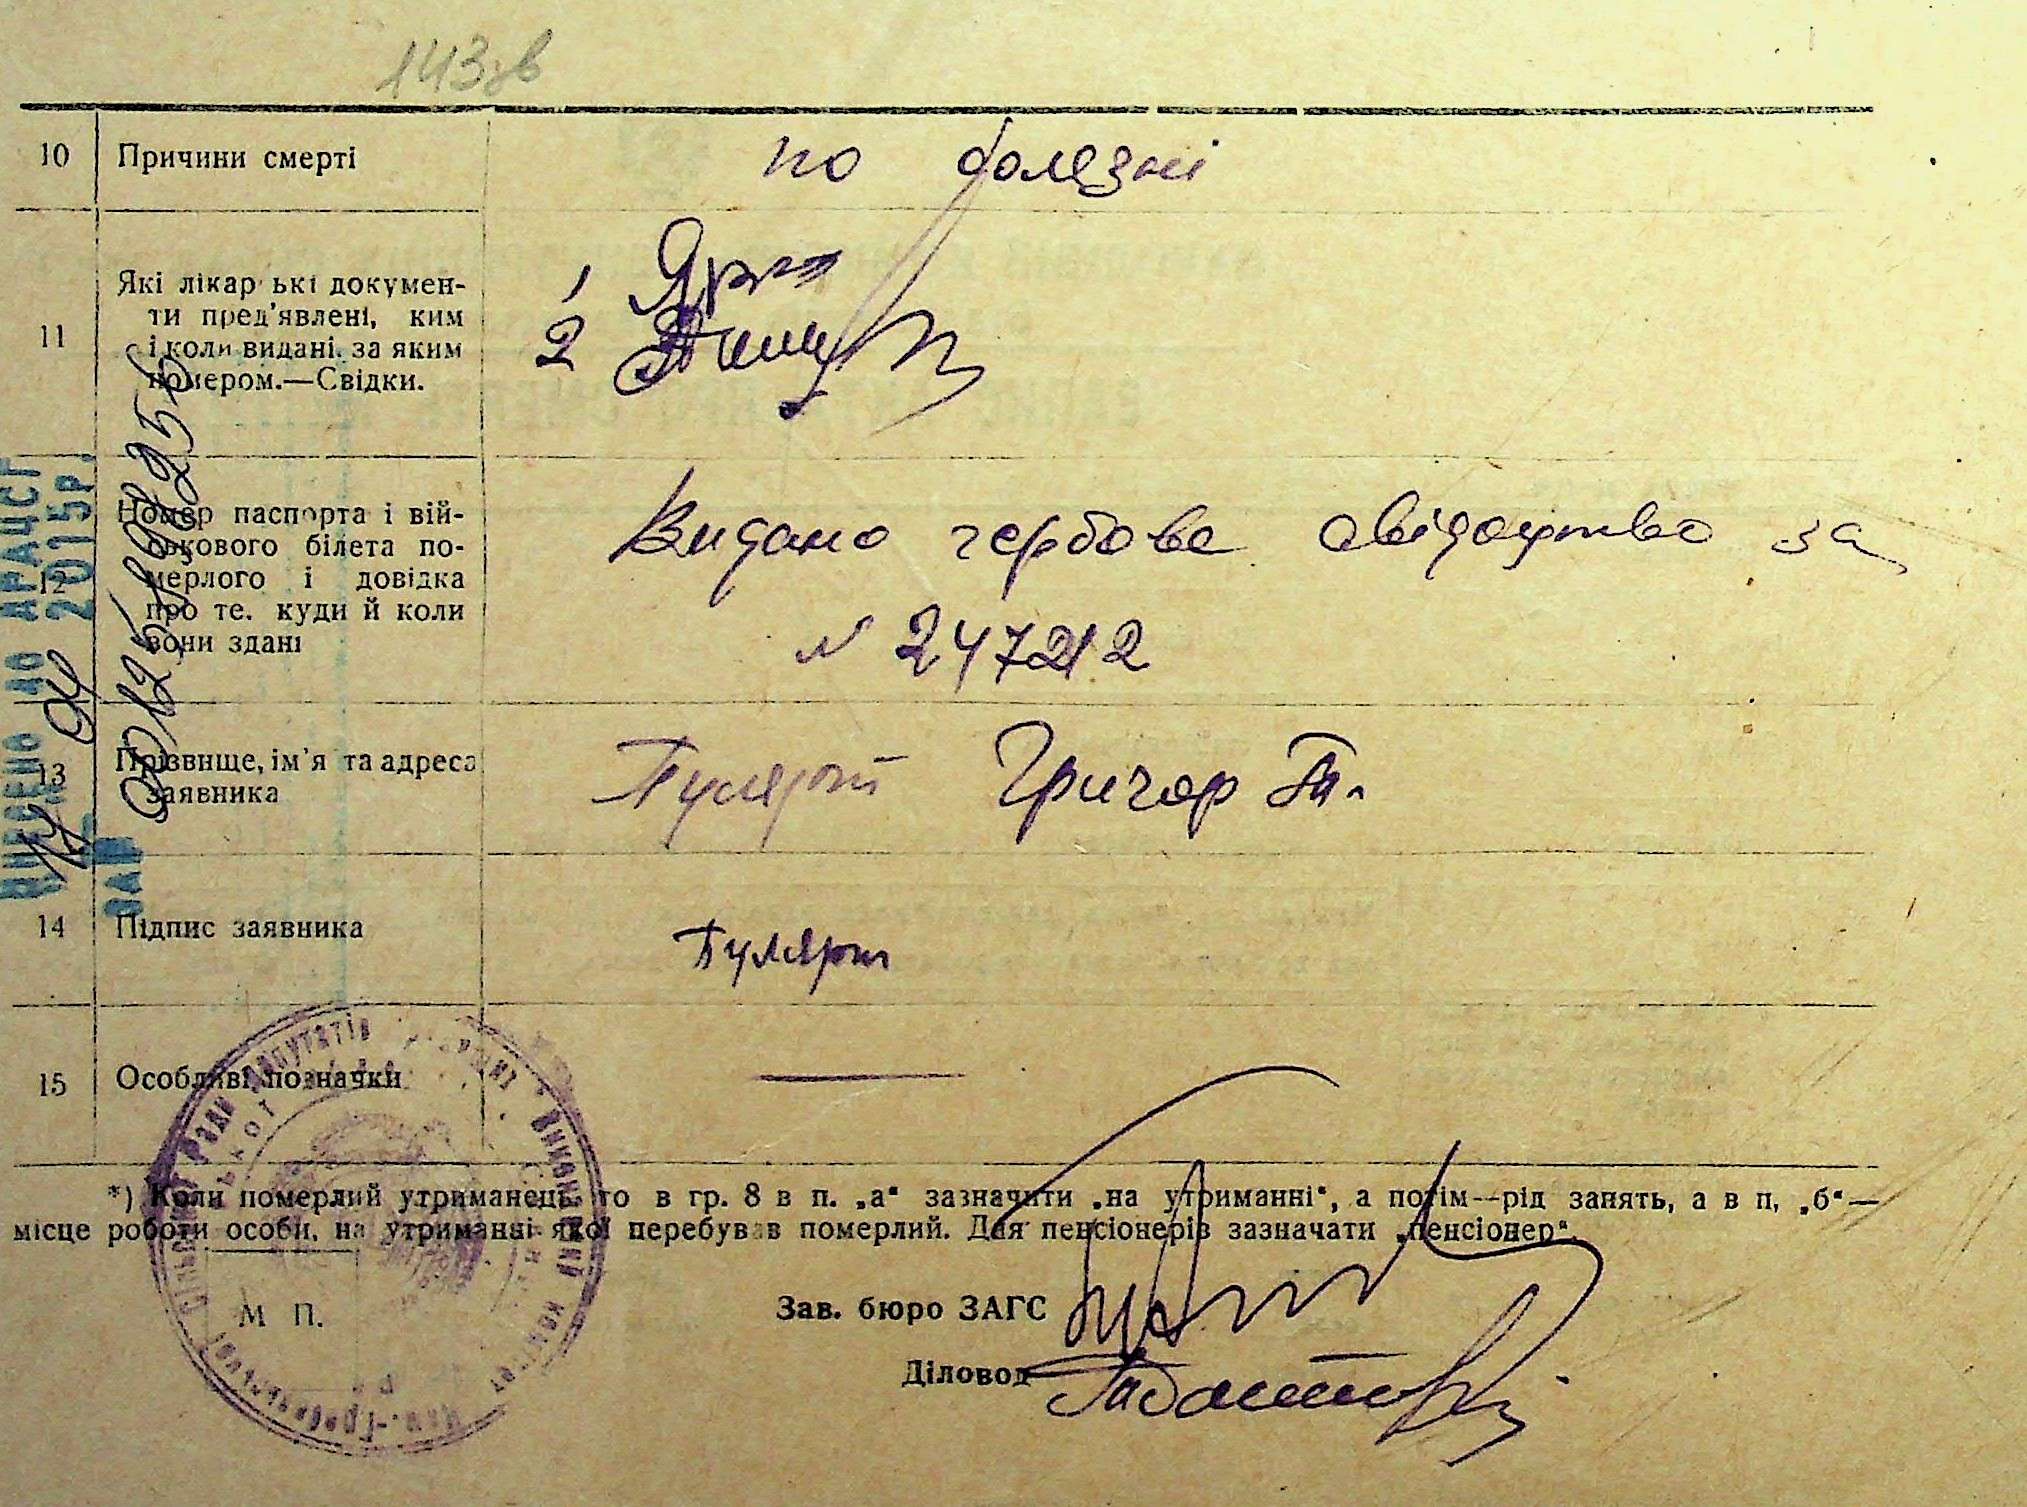 143зв
10 Причини смерті по болезні
11 Які лікарські докумен-
ти пред'явлені, ким
і коли видані, за яким
номером.—Свідки.
1
2
12 Номер паспорта і вій-
ськового білета по-
мерлого і довідка
про те, куди й коли
вони здані
Видано гербове свідоцтво за
N 247212
13 Прізвище, ім'я та адреса
заявника
Григор
14 Підпис заявника
15 Особливі позначки —
*) Коли померлий утриманець, то в гр. 8 в п. „а" зазначити „на утриманні", а потім—рід занять, а в п, „б"—
місце роботи особи, на утриманні якої перебував померлий. Для пенсіонерів зазначати „пенсіонер".
М П.
Зав. бюро ЗАГС
Діловод
ВНЕСЕНО ДО ДРАЦСГ
2015р.
Ради депутатів
Виконавчий комітет